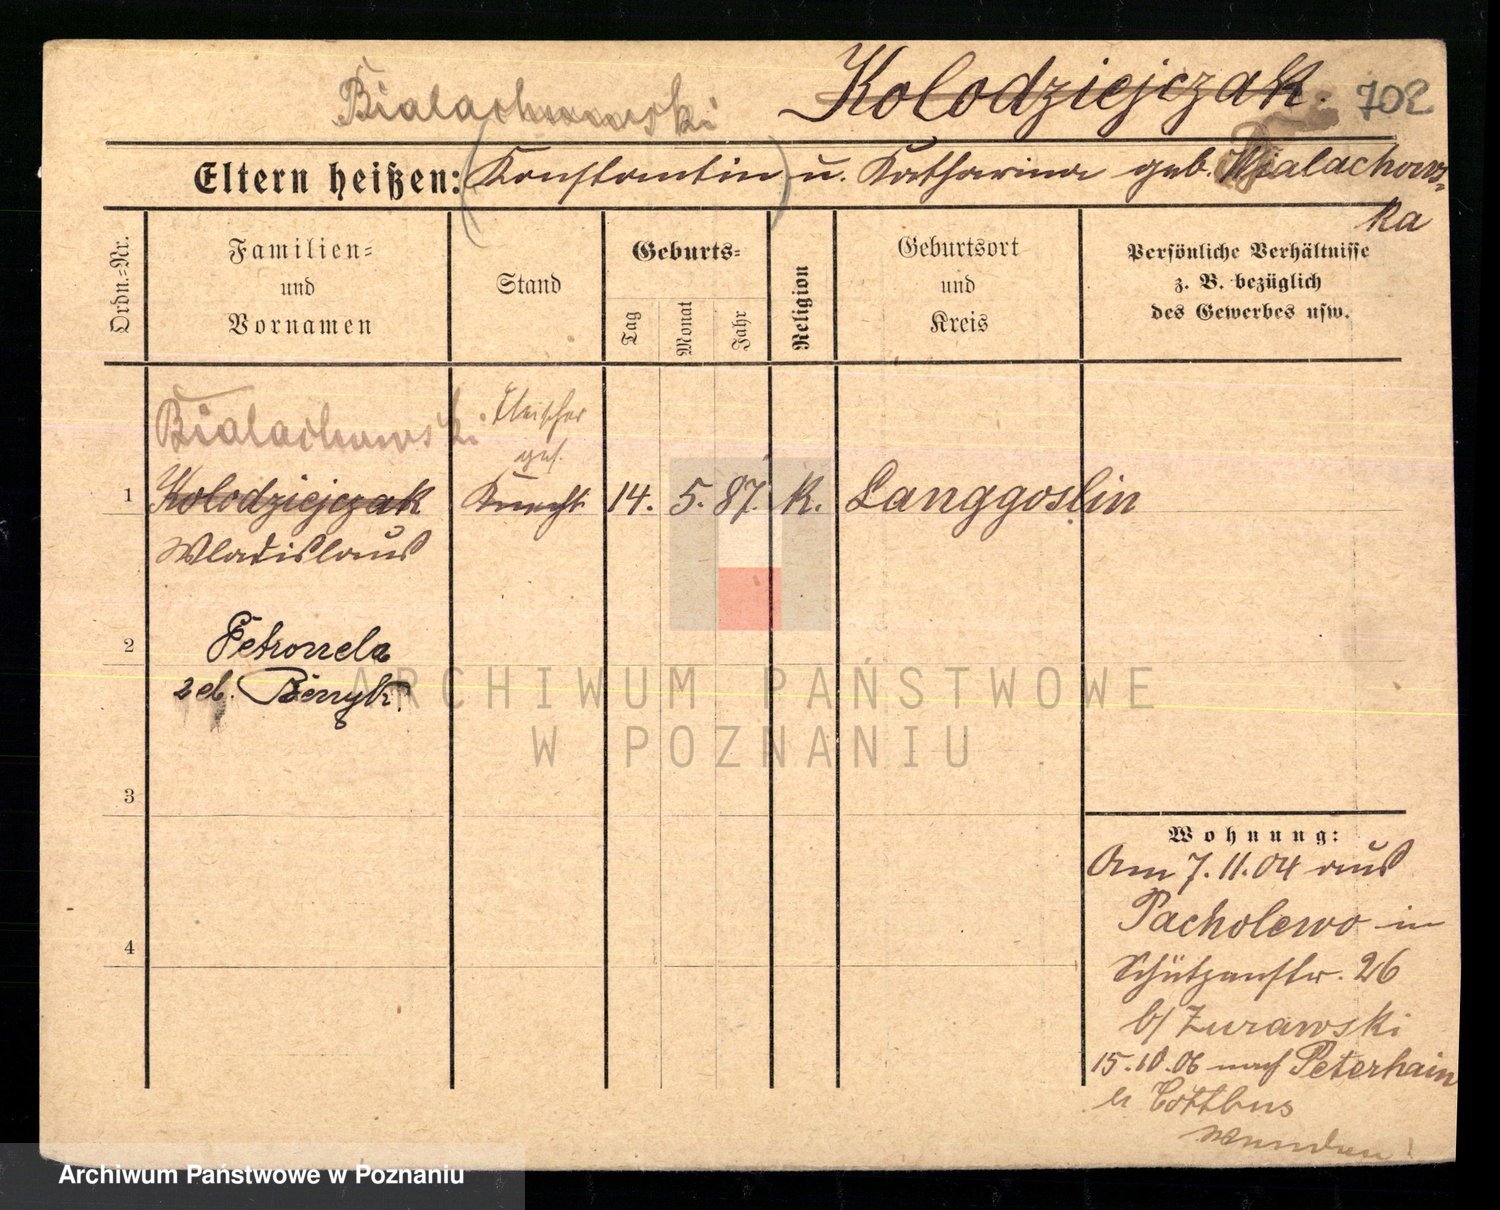 Bialachowski
Kolodziejczak. 702
Eltern heißen: (Konstantin) u. Katharina geb. Bialachows-
ka
Ordn.-Nr.
Familien-
und
Vornamen
Stand
Geburts-
Tag
Monat
Jahr
Religion
Geburtsort
und
Kreis
Persönliche Verhältnisse
z. B. bezüglich
des Gewerbes usw.
Bialachowski Fleischer
ges.
1 Kolodziejczak Knecht 14. 5. 87. K. Langgoslin
Wladislaus
2 Petronela
geb.
ARCHIWUM PAŃSTWOWE
W POZNANIU
3
Wohnung:
Am 7.11.04 aus
Pacholewo in
4
Schützenstr. 26
b/ Zurawski
15.10.06 nach Peterhain
Cottbus
Archiwum Państwowe w Poznaniu